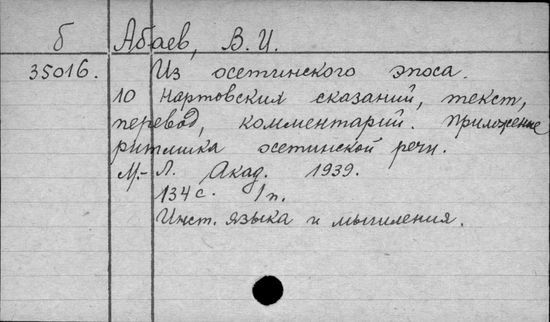 б Абаев, В. И.
35016. Из осетинского эпоса.
10 Нартовских сказаний, текст,
перевод, комментарий. Приложение
ритмика осетинской речи.
М.-Л. Акад. 1939.
134 с. 1 п.
Инст. языка и мышления.